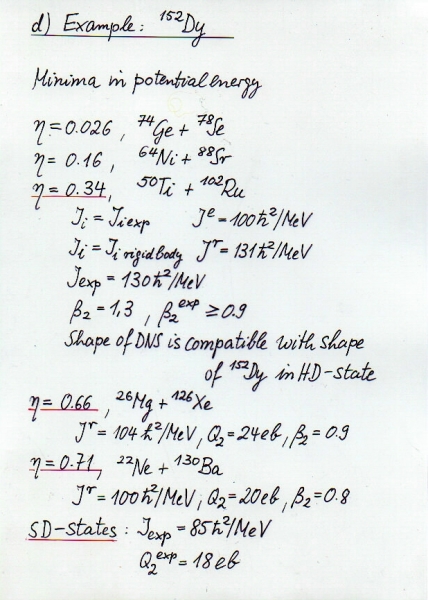 d) Example: ¹⁵²Dy
Minima in potential energy
η = 0.026, ⁷⁴Ge + ⁷⁸Se
η = 0.16, ⁶⁴Ni + ⁸⁸Sr
η = 0.34, ⁵⁰Ti + ¹⁰²Ru
ℐᵢ = ℐᵢ exp ℐᵉ = 100ħ²/MeV
ℐᵢ = ℐᵢ rigid body ℐʳ = 131ħ²/MeV
ℐexp = 130ħ²/MeV
β₂ = 1,3 , β₂ᵉˣᵖ ≥ 0.9
Shape of DNS is compatible with shape
of ¹⁵²Dy in HD-state
η = 0.66, ²⁶Mg + ¹²⁶Xe
ℐʳ = 104 ħ²/MeV, Q₂ = 24eb, β₂ = 0.9
η = 0.71, ²²Ne + ¹³⁰Ba
ℐʳ = 100ħ²/MeV, Q₂ = 20eb, β₂ = 0.8
SD-states: ℐexp = 85ħ²/MeV
Q₂ᵉˣᵖ = 18eb